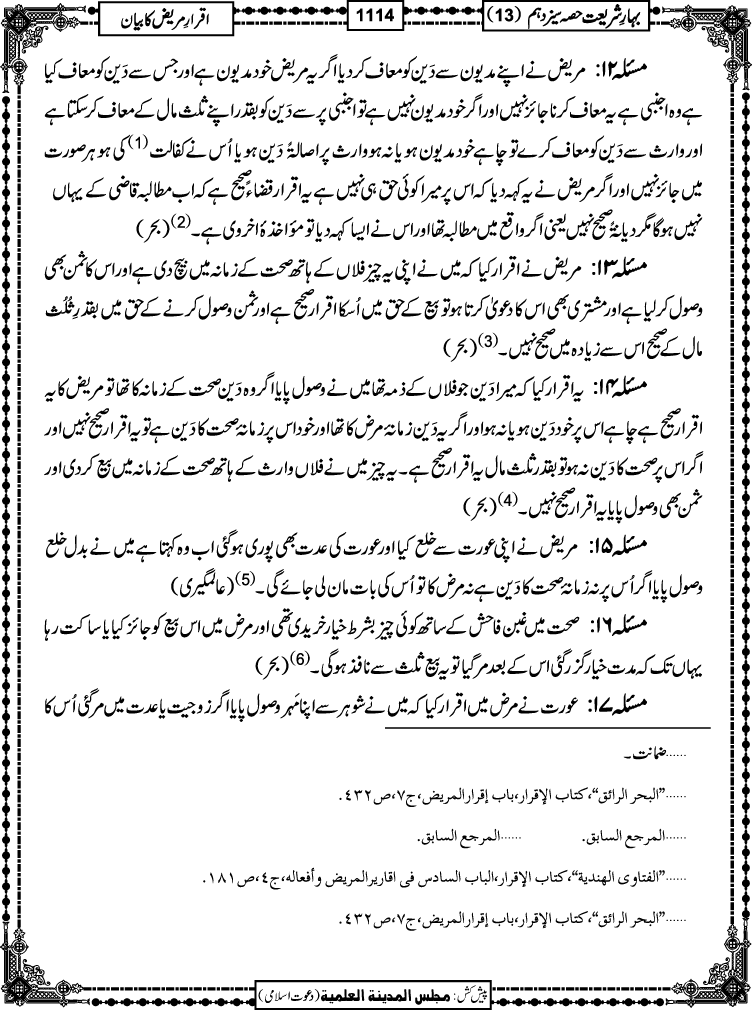 بہارِ شریعت حصہ سیزدہم (13)
1114
اقرارِ مریض کا بیان
مسئلہ ۱۲: مریض نے اپنے مدیون سے دَین کو معاف کر دیا اگر یہ مریض خود مدیون ہے اور جس سے دَین کو معاف کیا
ہے وہ اجنبی ہے یہ معاف کرنا جائز نہیں اور اگر خود مدیون نہیں ہے تو اجنبی پر سے دَین کو بقدر اپنے ثلث مال کے معاف کر سکتا ہے
اور وارث سے دَین کو معاف کرے تو چاہے خود مدیون ہو یا نہ ہو وارث پر اصالۃً دَین ہو یا اُس نے کفالت (1) کی ہو ہر صورت
میں جائز نہیں اور اگر مریض نے یہ کہہ دیا کہ اس پر میرا کوئی حق ہی نہیں ہے یہ اقرار قضاءً صحیح ہے کہ اب مطالبہ قاضی کے یہاں
نہیں ہوگا مگر دیانۃً صحیح نہیں یعنی اگر واقع میں مطالبہ تھا اور اس نے ایسا کہہ دیا تو مؤاخذۂ اخروی ہے۔(2) (بحر)
مسئلہ ۱۳: مریض نے اقرار کیا کہ میں نے اپنی یہ چیز فلاں کے ہاتھ صحت کے زمانہ میں بیچ دی ہے اور اس کا ثمن بھی
وصول کرلیا ہے اور مشتری بھی اس کا دعویٰ کرتا ہو تو بیع کے حق میں اُسکا اقرار صحیح ہے اور ثمن وصول کرنے کے حق میں بقدرِ ثُلُث
مال کے صحیح اس سے زیادہ میں صحیح نہیں۔(3) (بحر)
مسئلہ ۱۴: یہ اقرار کیا کہ میرا دَین جو فلاں کے ذمہ تھا میں نے وصول پایا اگر وہ دَین صحت کے زمانہ کا تھا تو مریض کا یہ
اقرار صحیح ہے چاہے اس پر خود دَین ہو یا نہ ہو اور اگر یہ دَین زمانۂ مرض کا تھا اور خود اس پر زمانۂ صحت کا دَین ہے تو یہ اقرار صحیح نہیں اور
اگر اس پر صحت کا دَین نہ ہو تو بقدر ثلث مال یہ اقرار صحیح ہے۔ یہ چیز میں نے فلاں وارث کے ہاتھ صحت کے زمانہ میں بیع کردی اور
ثمن بھی وصول پایا یہ اقرار صحیح نہیں۔(4) (بحر)
مسئلہ ۱۵: مریض نے اپنی عورت سے خلع کیا اور عورت کی عدت بھی پوری ہوگئی اب وہ کہتا ہے میں نے بدل خلع
وصول پایا اگر اُس پر نہ زمانۂ صحت کا دَین ہے نہ مرض کا تو اُس کی بات مان لی جائے گی۔(5) (عالمگیری)
مسئلہ ۱۶: صحت میں غبن فاحش کے ساتھ کوئی چیز بشرط خیار خریدی تھی اور مرض میں اس بیع کو جائز کیا یا ساکت رہا
یہاں تک کہ مدت خیار گزر گئی اس کے بعد مر گیا تو یہ بیع ثلث سے نافذ ہوگی۔(6) (بحر)
مسئلہ ۱۷: عورت نے مرض میں اقرار کیا کہ میں نے شوہر سے اپنا مَہر وصول پایا اگر زوجیت یا عدت میں مر گئی اُس کا
......ضمانت۔
......”البحر الرائق“،کتاب الإقرار،باب إقرارالمریض،ج۷،ص۴۳۲.
......المرجع السابق. ......المرجع السابق.
......”الفتاوی الهندیة“،کتاب الإقرار،الباب السادس فی اقاریرالمریض وأفعاله،ج٤،ص۱۸۱.
......”البحر الرائق“،کتاب الإقرار،باب إقرارالمریض،ج۷،ص۴۳۲.
پیش کش: مجلس المدینة العلمیة (دعوت اسلامی)